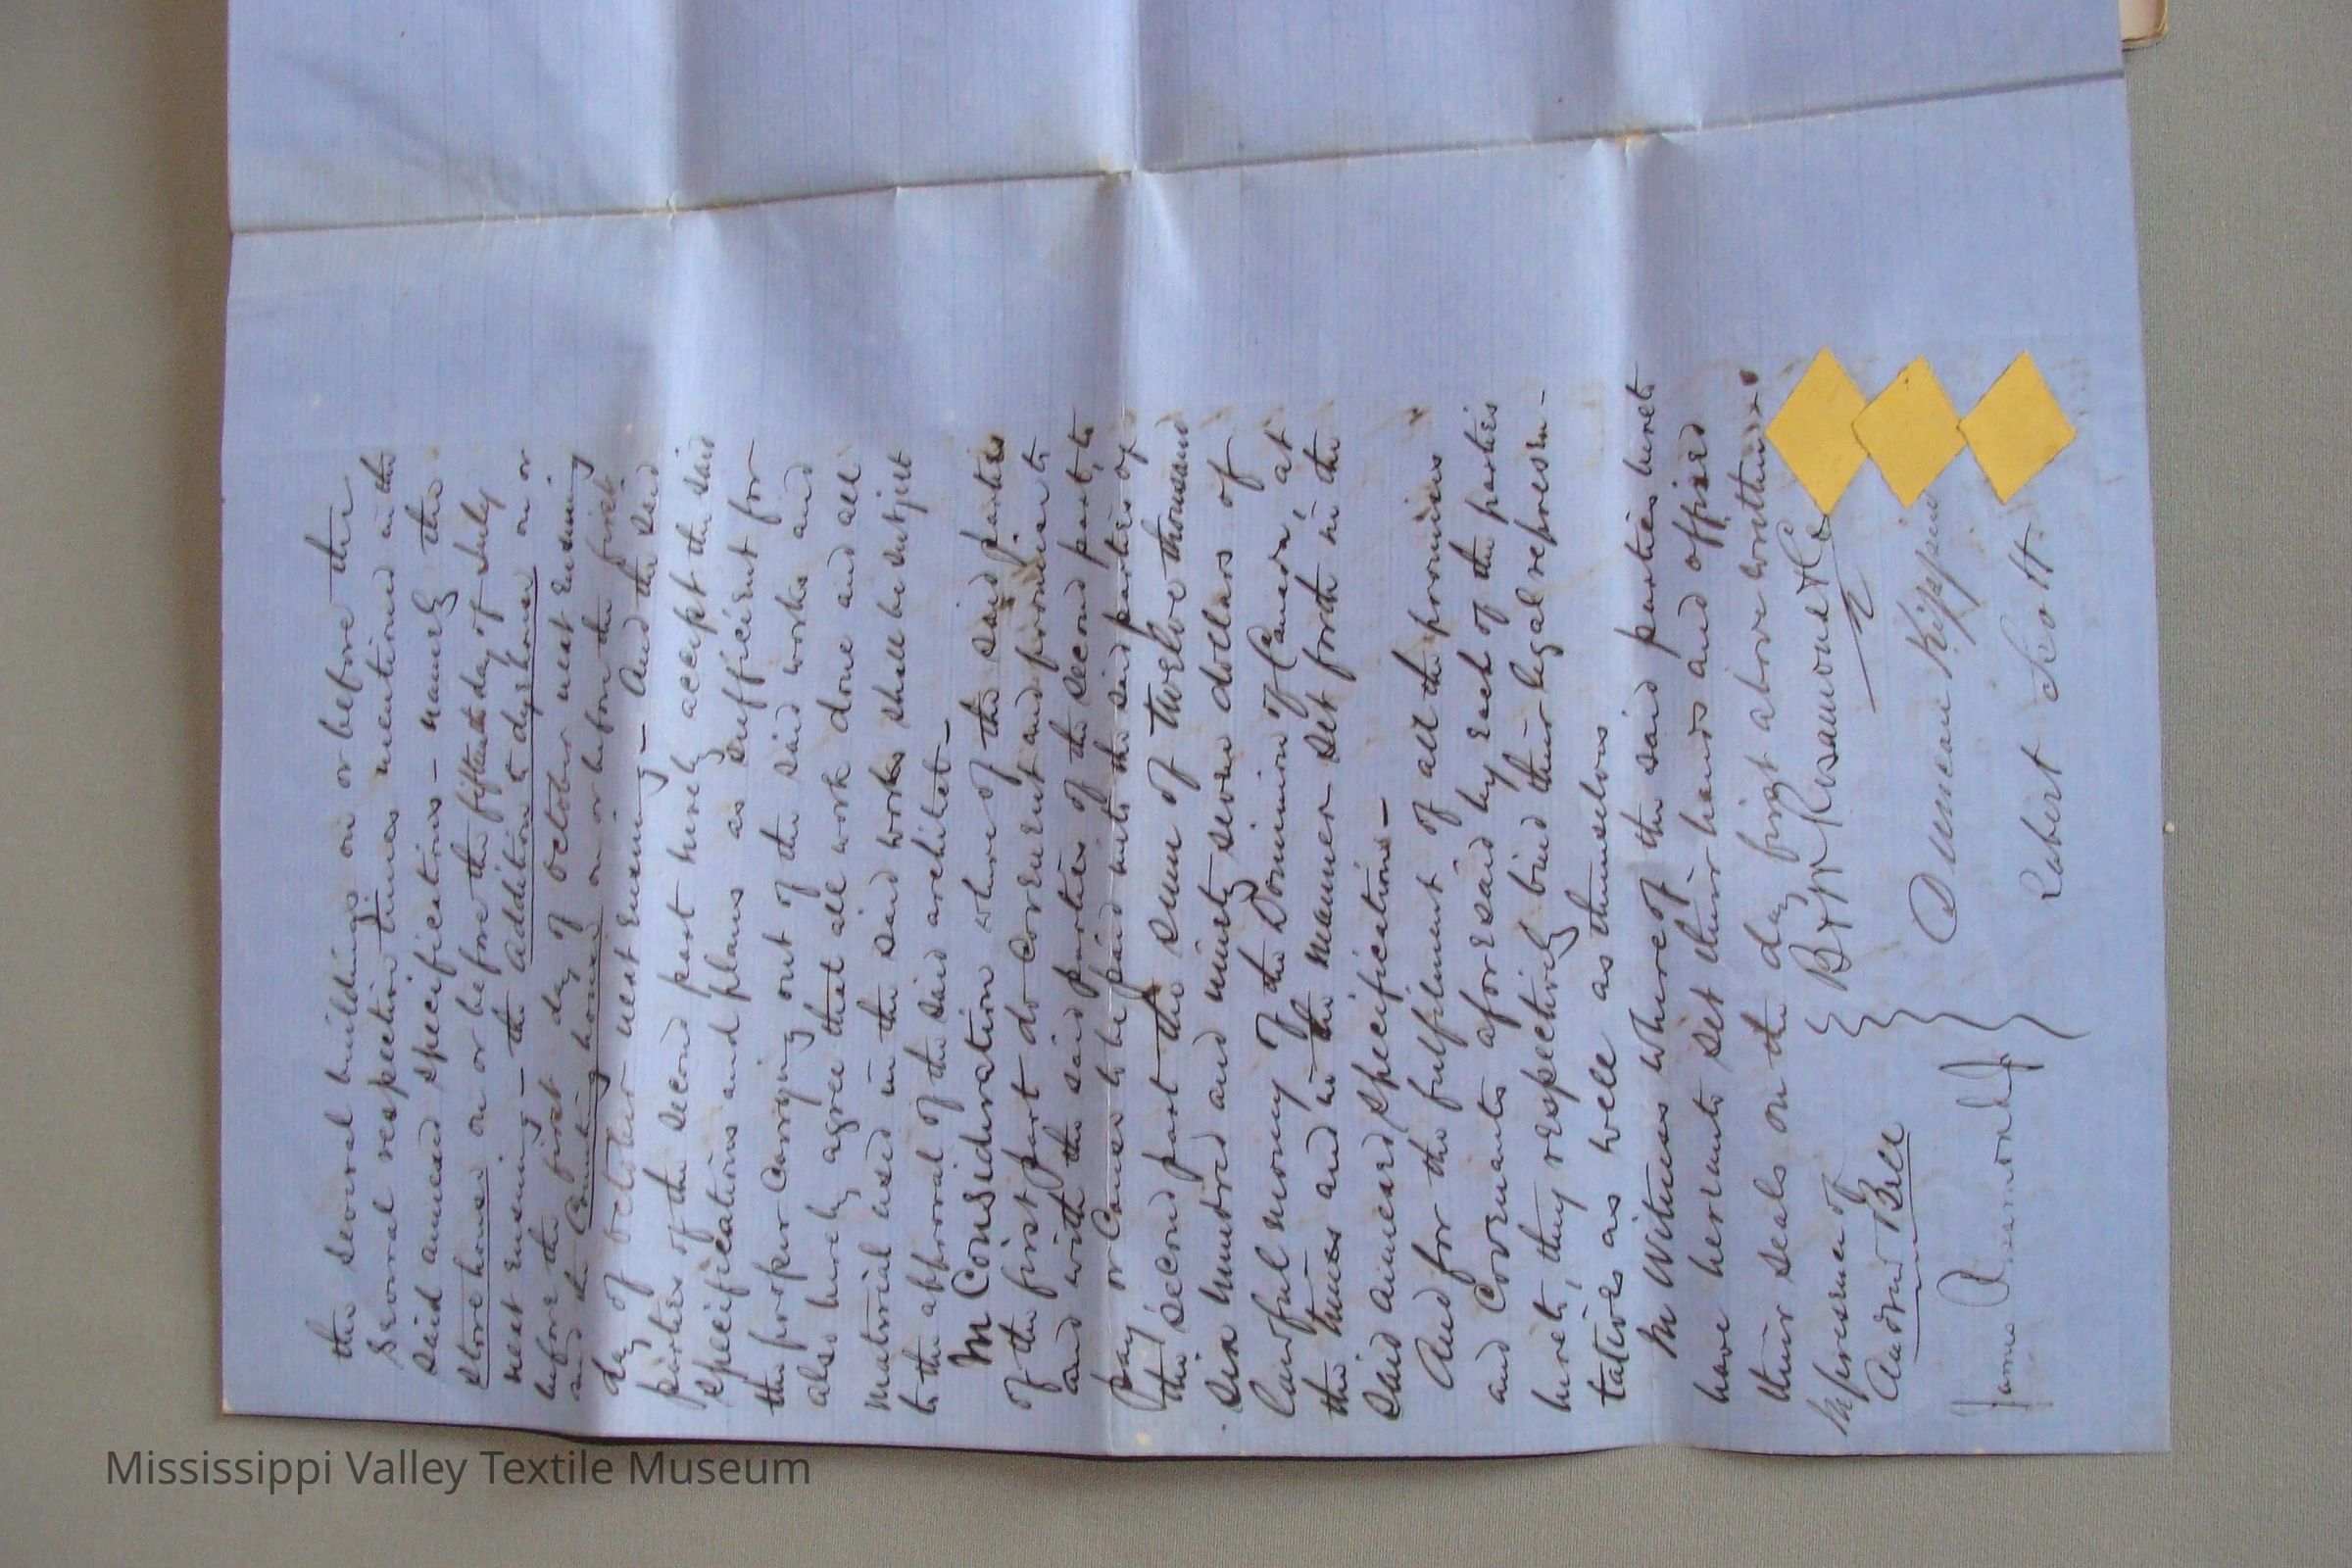 the several buildings on or before the
several respective times mentioned in the
said annexed specifications – namely the
Store house on or before the fifteenth day of July
next ensuing – the addition to dyehouse on or
before the first day of October next ensuing
and the Counting house on or before the first
day of October next ensuing – And the said
parties of the second part hereby accept the said
specifications and plans as sufficient for
the proper carrying out of the said works and
also hereby agree that all work done and all
material used in the said works shall be subject
to the approval of the said architect –
In Consideration whereof the said parties
of the first part do covenant and promise to
and with the said parties of the second part, to
pay or cause to be paid unto the said parties of
the second part the sum of twelve thousand
six hundred and ninety seven dollars of
lawful money of the Dominion of Canada, at
the times and in the manner set forth in the
said annexed specifications –
And for the fulfilment of all the promises
and Covenants aforesaid by each of the parties
hereto, they respectively bind their legal represen-
tatives as well as themselves
In Witness whereof the said parties hereto
have hereunto set their hands and affixed
their seals on the day first above written
In presence of
Andrew Bell
James Rosamond
B & W Rosamond & Co
Duncan Kippen
Robert Scott
Mississippi Valley Textile Museum